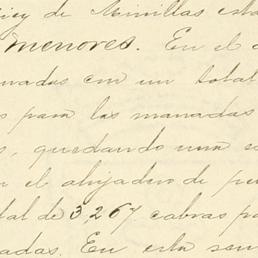 de Minillas est
menores. En el
nadas con un total
s para las manadas
s, quedando una s
n el ahijadero de p
tal de 3,267 cabras pa
adas. En esta sem